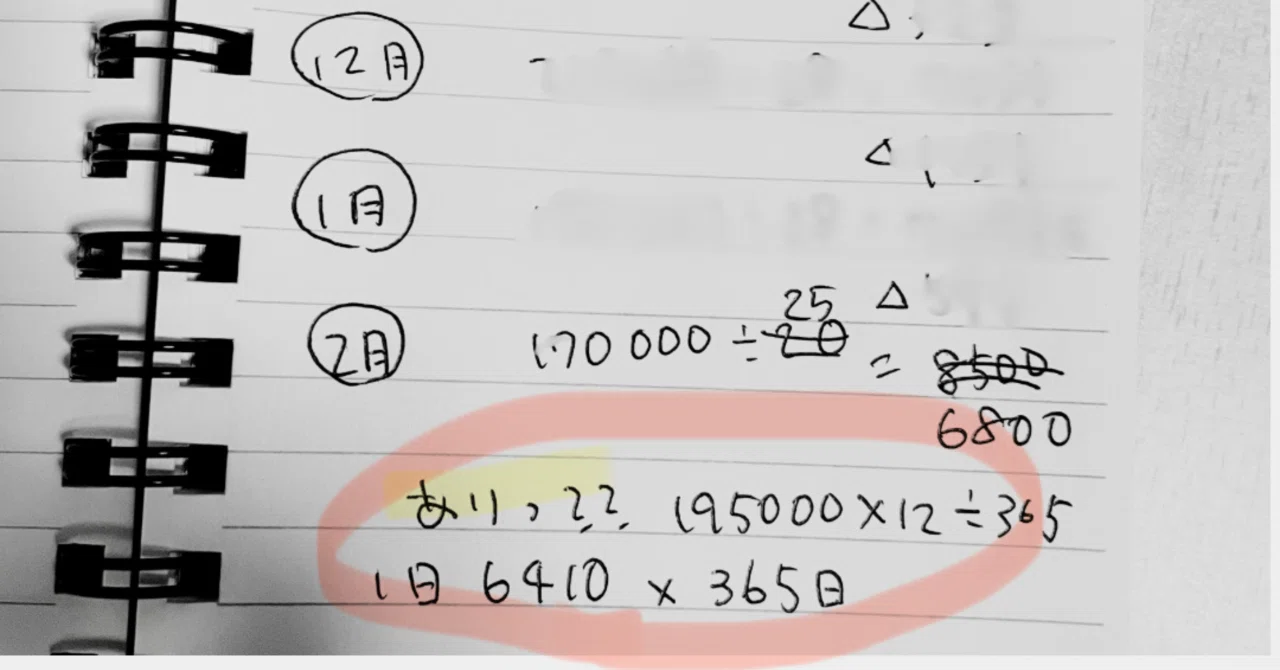 12月
1月
25
2月 170000÷20 = 8500
6800
あり、?? 195000×12÷365
1日 6410 × 365日